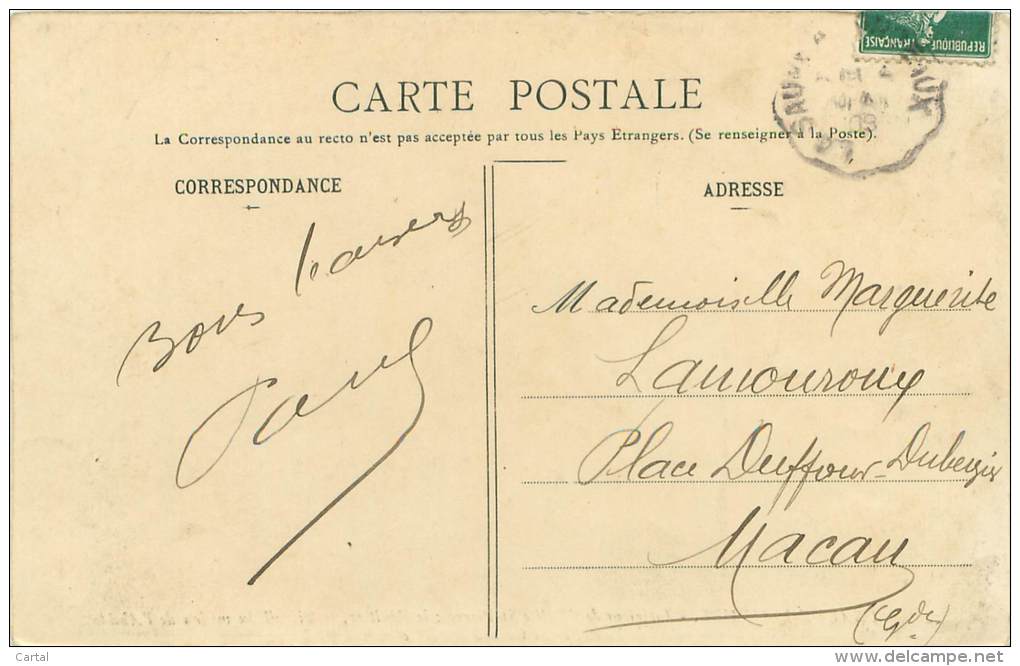 REPUBLIQUE FRANÇAISE
CARTE POSTALE
La Correspondance au recto n'est pas acceptée par tous les Pays Etrangers. (Se renseigner à la Poste).
CORRESPONDANCE
Bons baisers
Paul
ADRESSE
Mademoiselle Marguerite
Lamouroux
Place Duffour-Dubergier
Macau
(Gde)
Cartal
delcampe.net